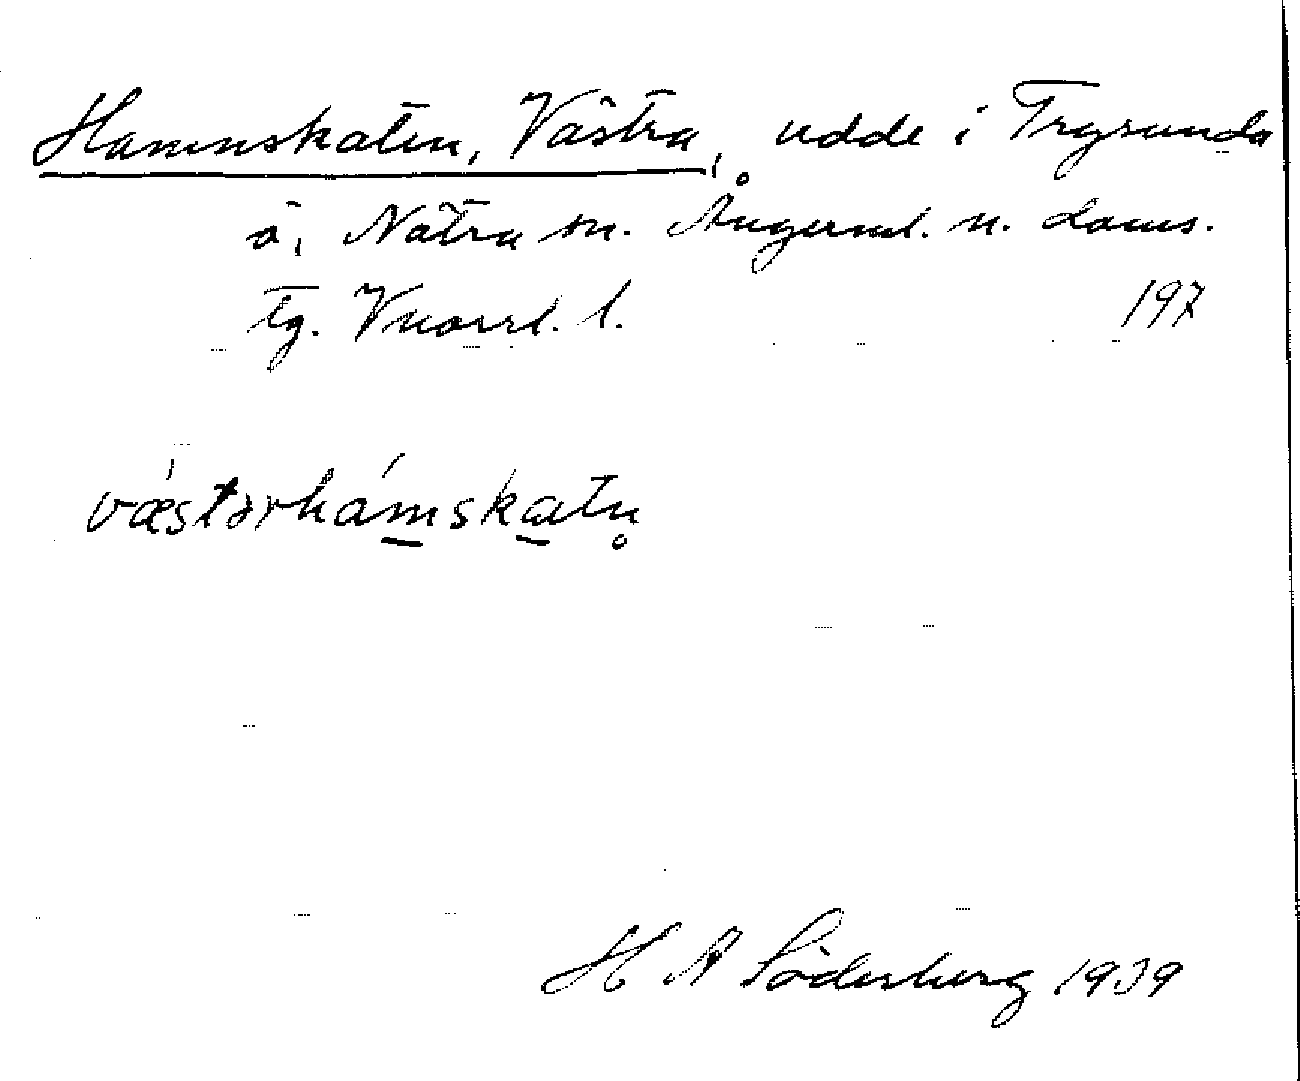 Hamnskaten, Västra, udde i Trysunda
ö, Nätra sn. Ångerml. n. doms.
tg. Vnorrl. l. 197
væ̍stərhám̱ska̱tn̥
H A Söderberg 1939